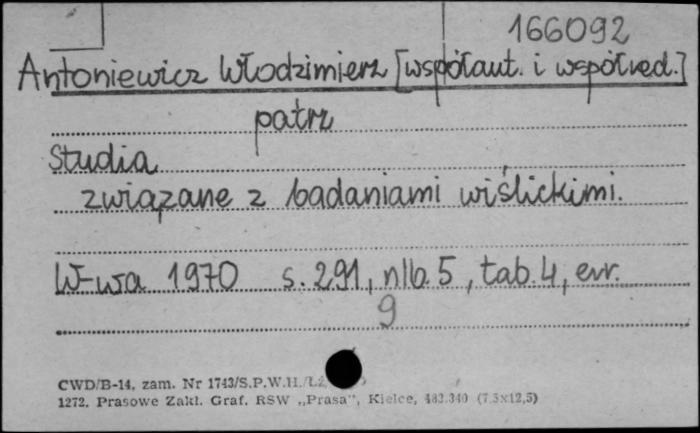 166092
Antoniewicz Włodzimierz [współaut. i współred.]
patrz
Studia
związane z badaniami wiślickimi.
W-wa 1970 s. 291, nlb. 5, tab. 4, err.
9
CWD/B-14, zam. Nr 1743/S.P.W.H./Łż,
1272. Prasowe Zakł. Graf. RSW „Prasa”, Kielce, 483.340 (7.5x12,5)